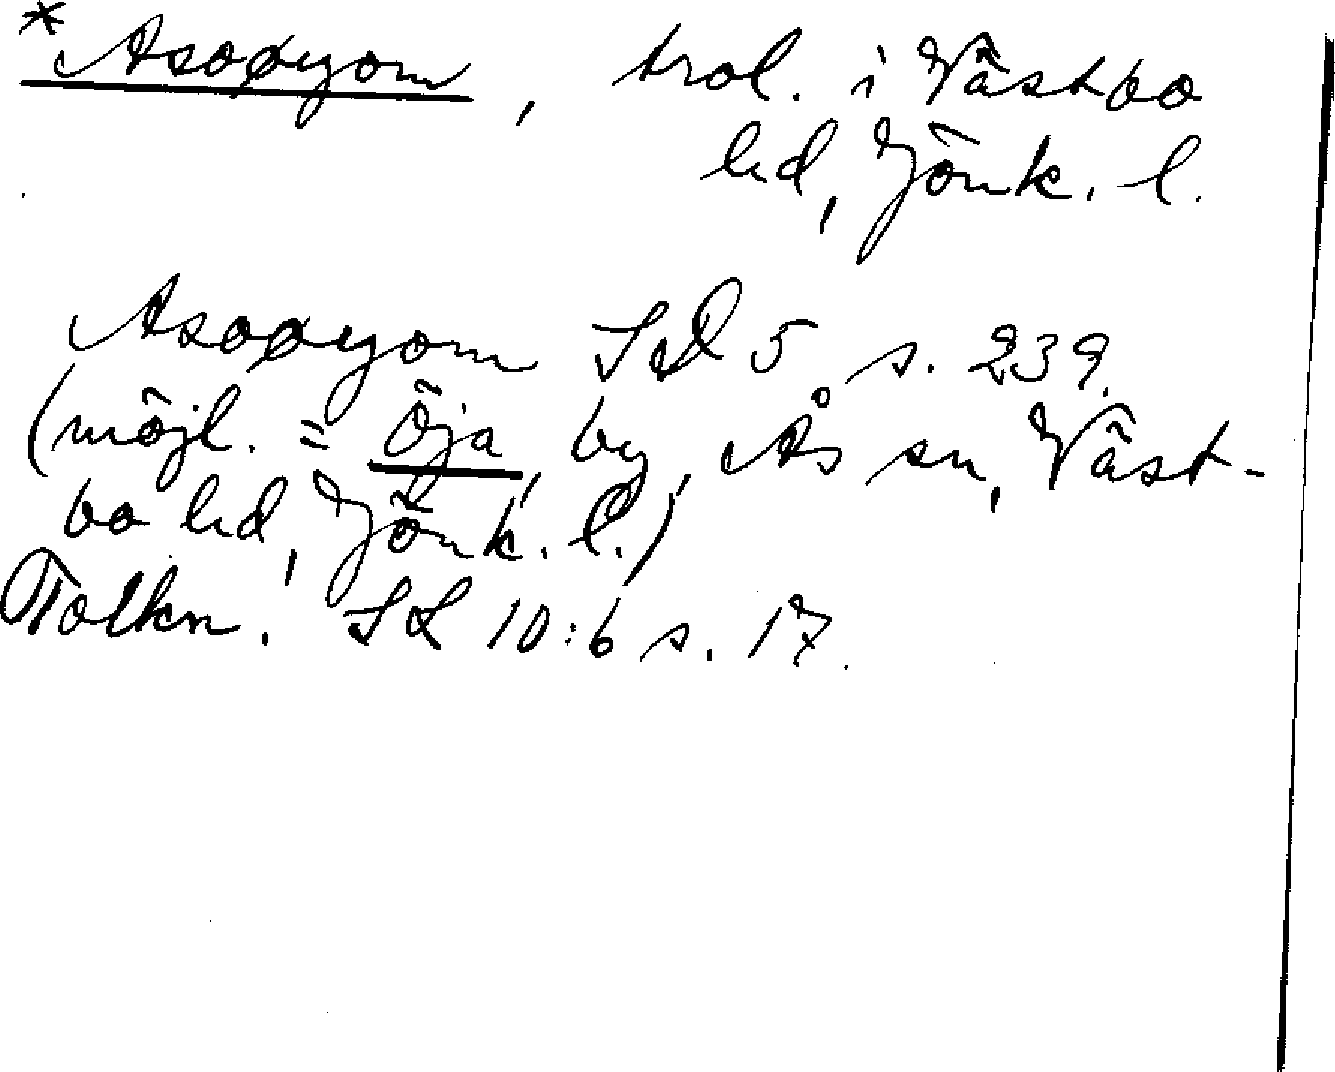 *Asoøyom, trol. i Västbo
hd, Jönk. l.
Asoøyom SD 5 s. 239.
(möjl. = Öja, by, Ås sn, Väst-
bo hd, Jönk. l.)
Tolkn. SL 10:6 s. 17.